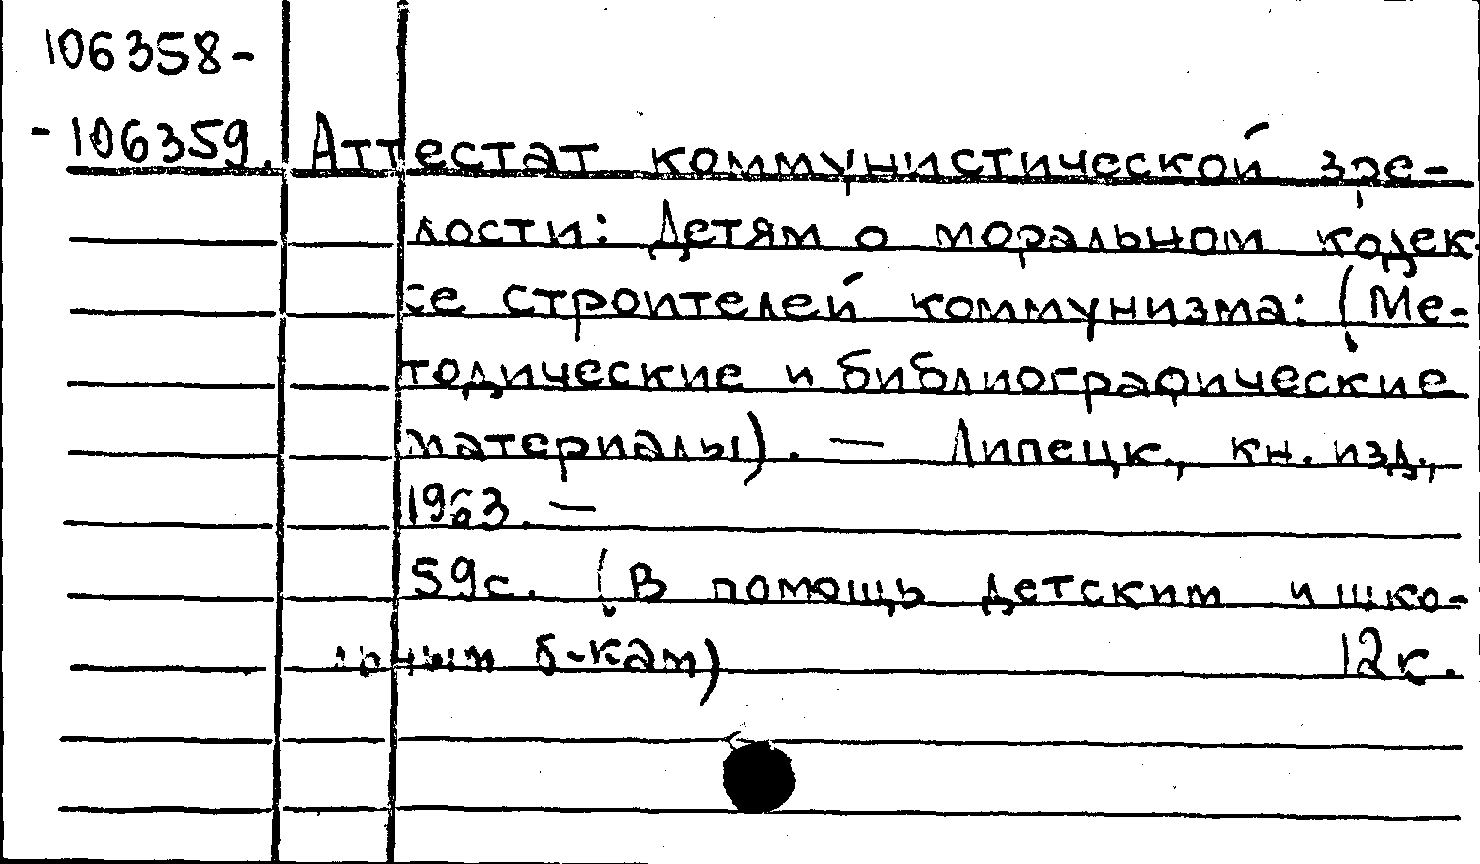 106358-
-106359. Аттестат коммунистической зре-
лости: Детям о моральном кодек
се строителей коммунизма: (Ме-
тодические и библиографические
материалы). — Липецк., кн. изд.,
1963. —
59с. (В помощь детским и шко-
льным б-кам) 12к.